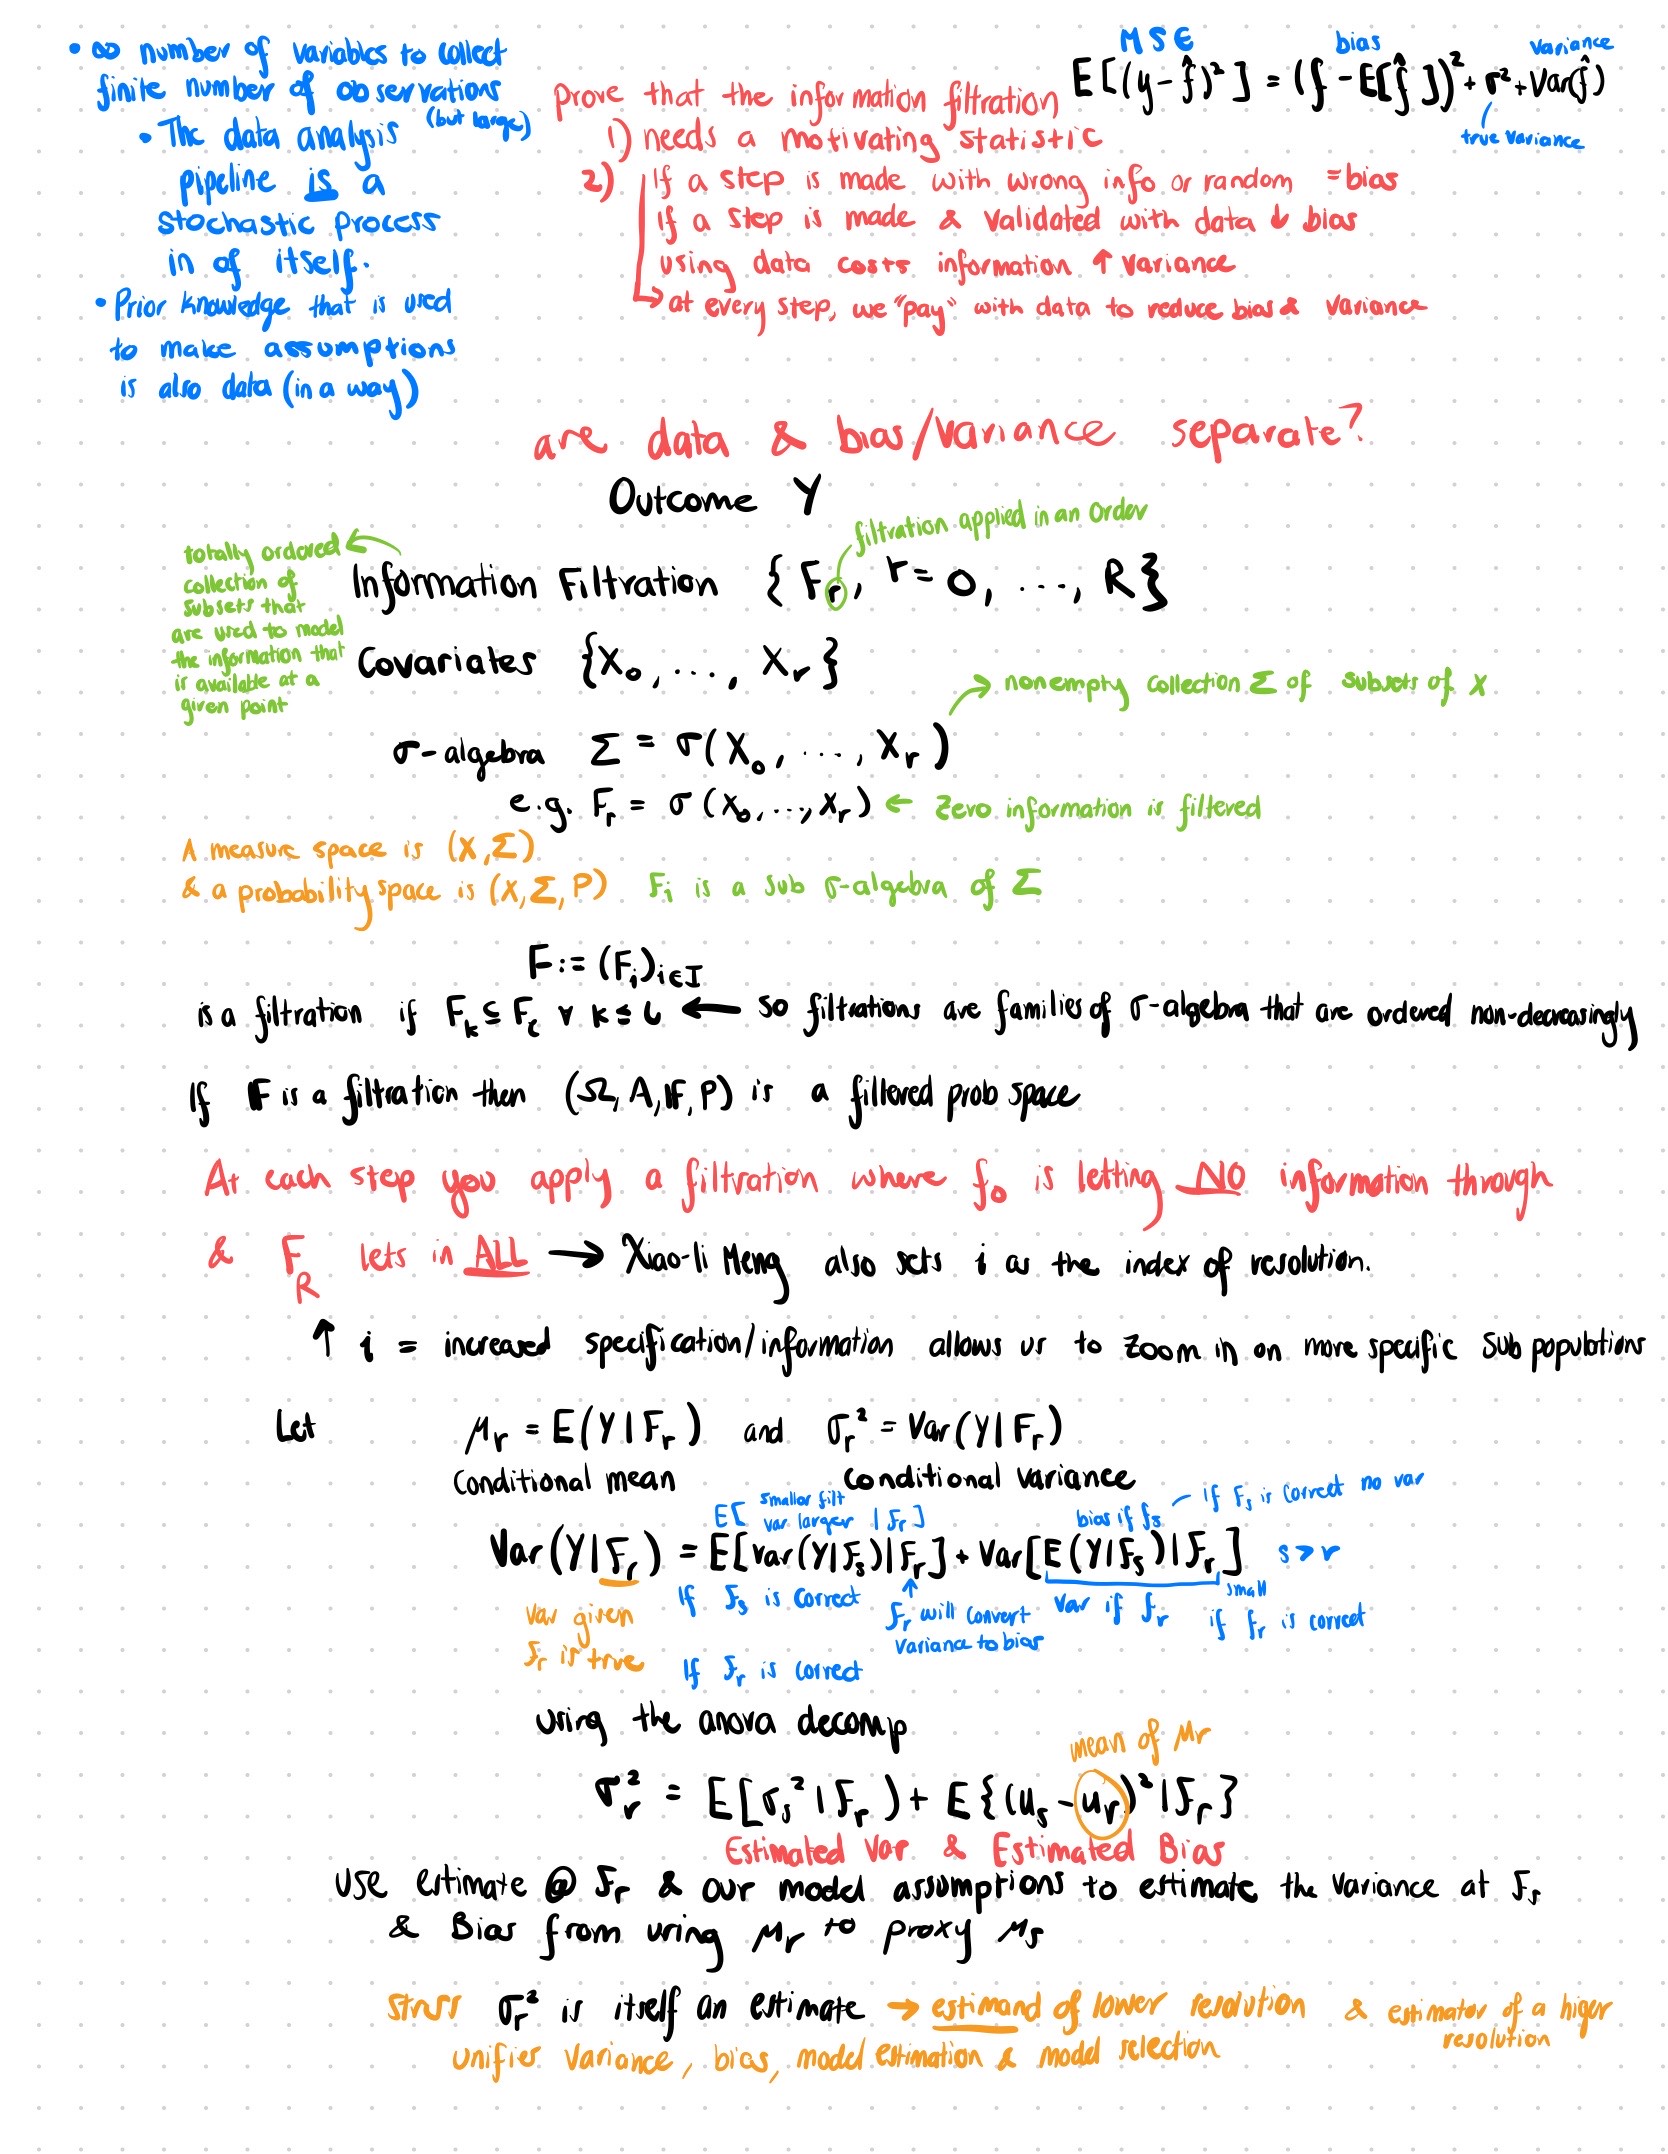 • ∞ number of variables to collect
finite number of observations
(but large)
• The data analysis
pipeline is a
stochastic process
in of itself.
• Prior knowledge that is used
to make assumptions
is also data (in a way)
MSE bias variance
E[(y-f̂)²] = (f-E[f̂])² + σ² + Var(f̂)
true variance
prove that the information filtration
1) needs a motivating statistic
2) If a step is made with wrong info or random = bias
If a step is made & validated with data ↓ bias
using data costs information ↑ variance
↳ at every step, we "pay" with data to reduce bias & variance
are data & bias/variance separate?
Outcome Y
filtration applied in an order
Information Filtration {F_r, r=0, ..., R}
totally ordered
collection of
subsets that
are used to model
the information that
is available at a
given point
Covariates {X₀, ..., X_r}
→ nonempty collection Σ of subsets of X
σ-algebra Σ = σ(X₀, ..., X_r)
e.g. F_r = σ(X₀, ..., X_r) ← Zero information is filtered
A measure space is (X,Σ)
& a probability space is (X,Σ,P) F_i is a sub σ-algebra of Σ
F := (F_i)_{i∈I}
is a filtration if F_k ⊆ F_ℓ ∀ k ≤ ℓ ← so filtrations are families of σ-algebra that are ordered non-decreasingly
If 𝔽 is a filtration then (Ω, A, 𝔽, P) is a filtered prob space
At each step you apply a filtration where f₀ is letting NO information through
& F_R lets in ALL → Xiao-li Meng also sets i as the index of resolution.
↑ i = increased specification/information allows us to zoom in on more specific sub populations
Let μ_r = E(Y|F_r) and σ_r² = Var(Y|F_r)
conditional mean conditional variance
E[ smaller filt var larger | F_r]
bias if f_s – if F_s is correct no var
Var(Y|F_r) = E[Var(Y|F_s)|F_r] + Var[E(Y|F_s)|F_r] s>r
var given
F_r is true
If F_s is correct
If F_r is correct
↑ F_r will convert
variance to bias
var if f_r
small
if f_r is correct
using the anova decomp
mean of μ_r
σ_r² = E[σ_s²|F_r) + E{(u_s-u_r)²|F_r}
Estimated Var & Estimated Bias
Use estimate @ F_r & our model assumptions to estimate the variance at F_s
& Bias from using μ_r to proxy μ_s
Stress σ_r² is itself an estimate → estimand of lower resolution & estimator of a higer
resolution
unifies variance, bias, model estimation & model selection